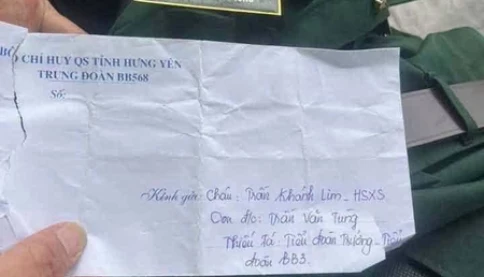 BỘ CHỈ HUY QS TỈNH HƯNG YÊN
TRUNG ĐOÀN BB568
Số:
Kính gửi: Cháu: Trần Khánh Lim - HSXS
Con đ/c: Trần Văn Tùng
Thiếu tá: Tiểu đoàn Trưởng - Tiểu
đoàn BB3.